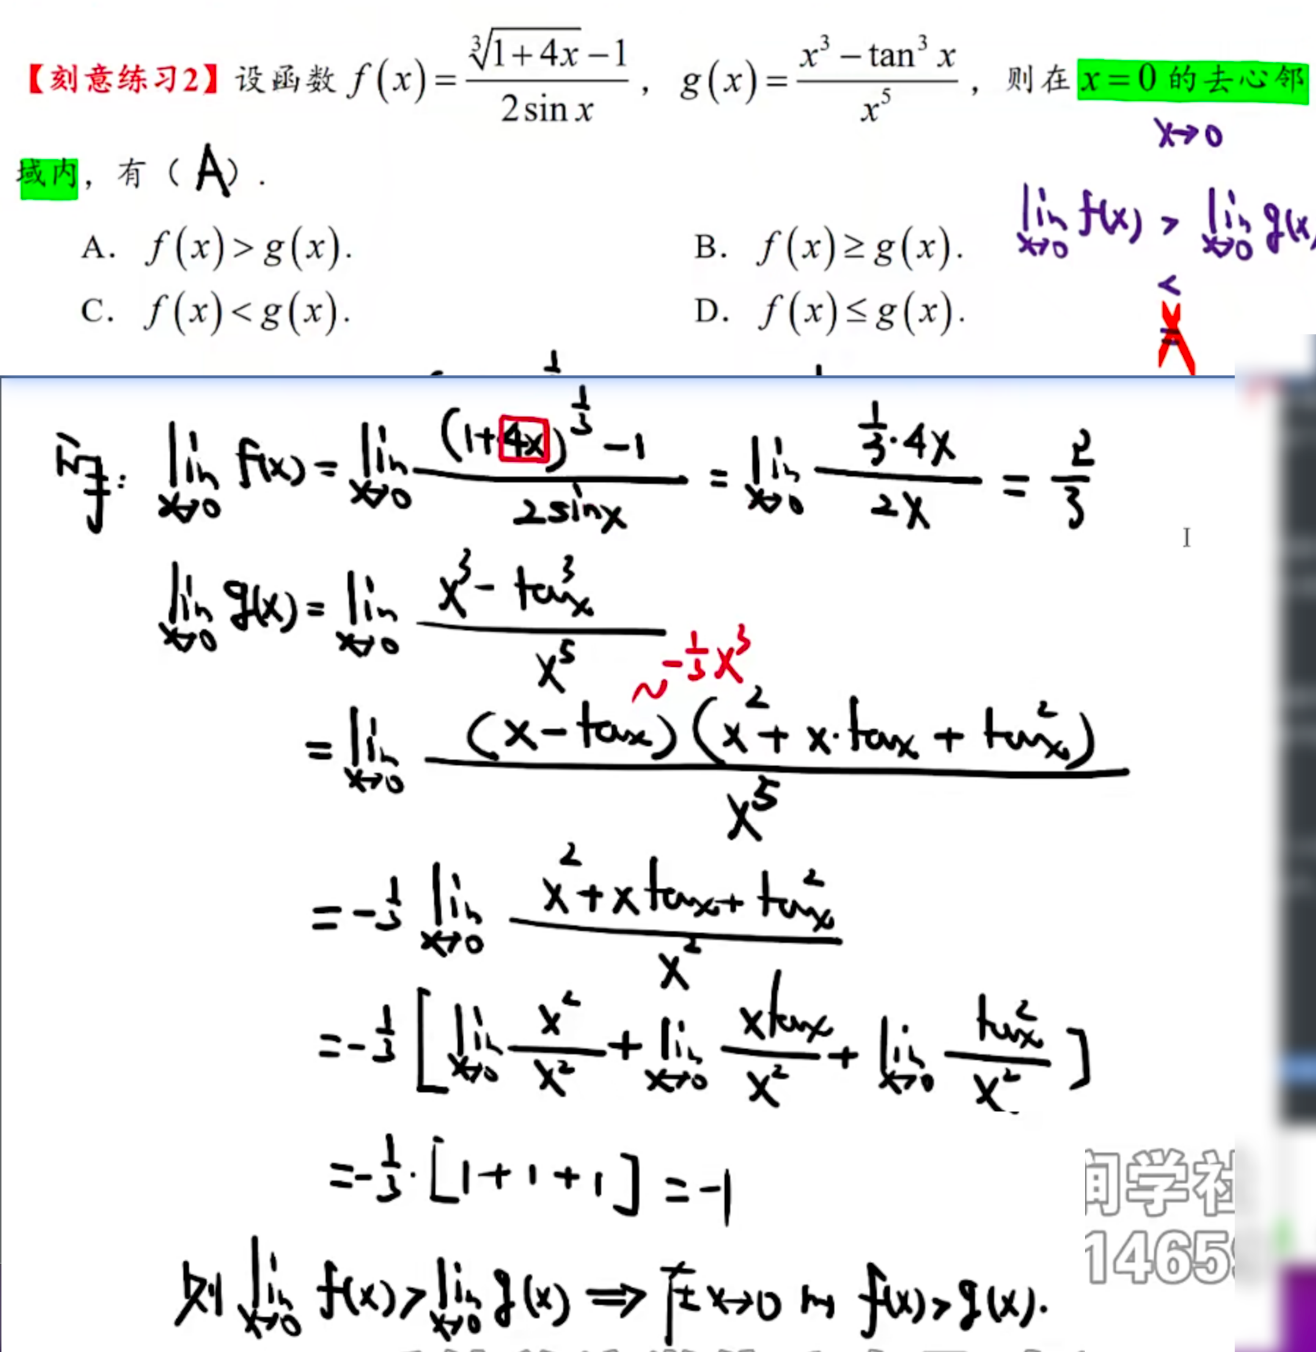 【刻意练习2】设函数 f(x) = (∛(1+4x) − 1)/(2 sin x) , g(x) = (x³ − tan³ x)/x⁵ , 则在 x = 0 的去心邻
x→0
域内, 有 ( A ) .
lim_{x→0} f(x) > lim_{x→0} g(x
A. f(x) > g(x). B. f(x) ≥ g(x).
<
C. f(x) < g(x). D. f(x) ≤ g(x).
=
lim_{x→0} f(x) = lim_{x→0} ((1+4x)^{1/3} − 1)/(2sinx) = lim_{x→0} (1/3·4x)/(2x) = 2/3
lim_{x→0} g(x) = lim_{x→0} (x³ − tan³x)/x⁵
~ −1/3 x³
= lim_{x→0} ((x − tanx)(x² + x·tanx + tan²x))/x⁵
= −1/3 lim_{x→0} (x² + x tanx + tan²x)/x²
= −1/3 [ lim_{x→0} x²/x² + lim_{x→0} (x tanx)/x² + lim_{x→0} tan²x/x² ]
= −1/3 · [1 + 1 + 1] = −1
则 lim_{x→0} f(x) > lim_{x→0} g(x) ⇒ 在 x→0 时 f(x) > g(x).
学社
1465